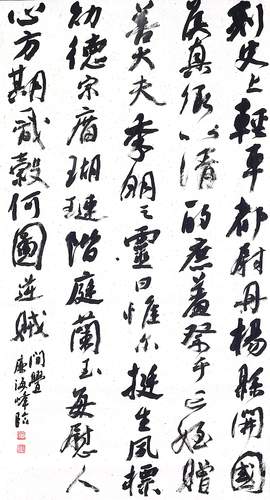 刺史上輕車都尉丹楊縣開國
侯真卿以清酌庶羞祭于亡姪贈
善大夫季明之靈曰惟尓挺生夙標
幼德宗廟瑚璉階庭蘭玉每慰人
心方期戩穀何圖逆賊
間釁
海峰臨